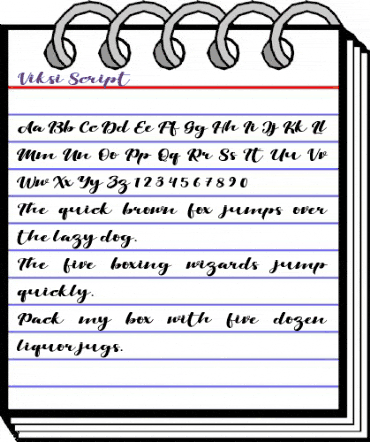 Viksi Script
Aa Bb Cc Dd Ee Ff Gg Hh Ii Jj Kk Ll
Mm Nn Oo Pp Qq Rr Ss Tt Uu Vv
Ww Xx Yy Zz 1 2 3 4 5 6 7 8 9 0
The quick brown fox jumps over
the lazy dog.
The five boxing wizards jump
quickly.
Pack my box with five dozen
liquor jugs.